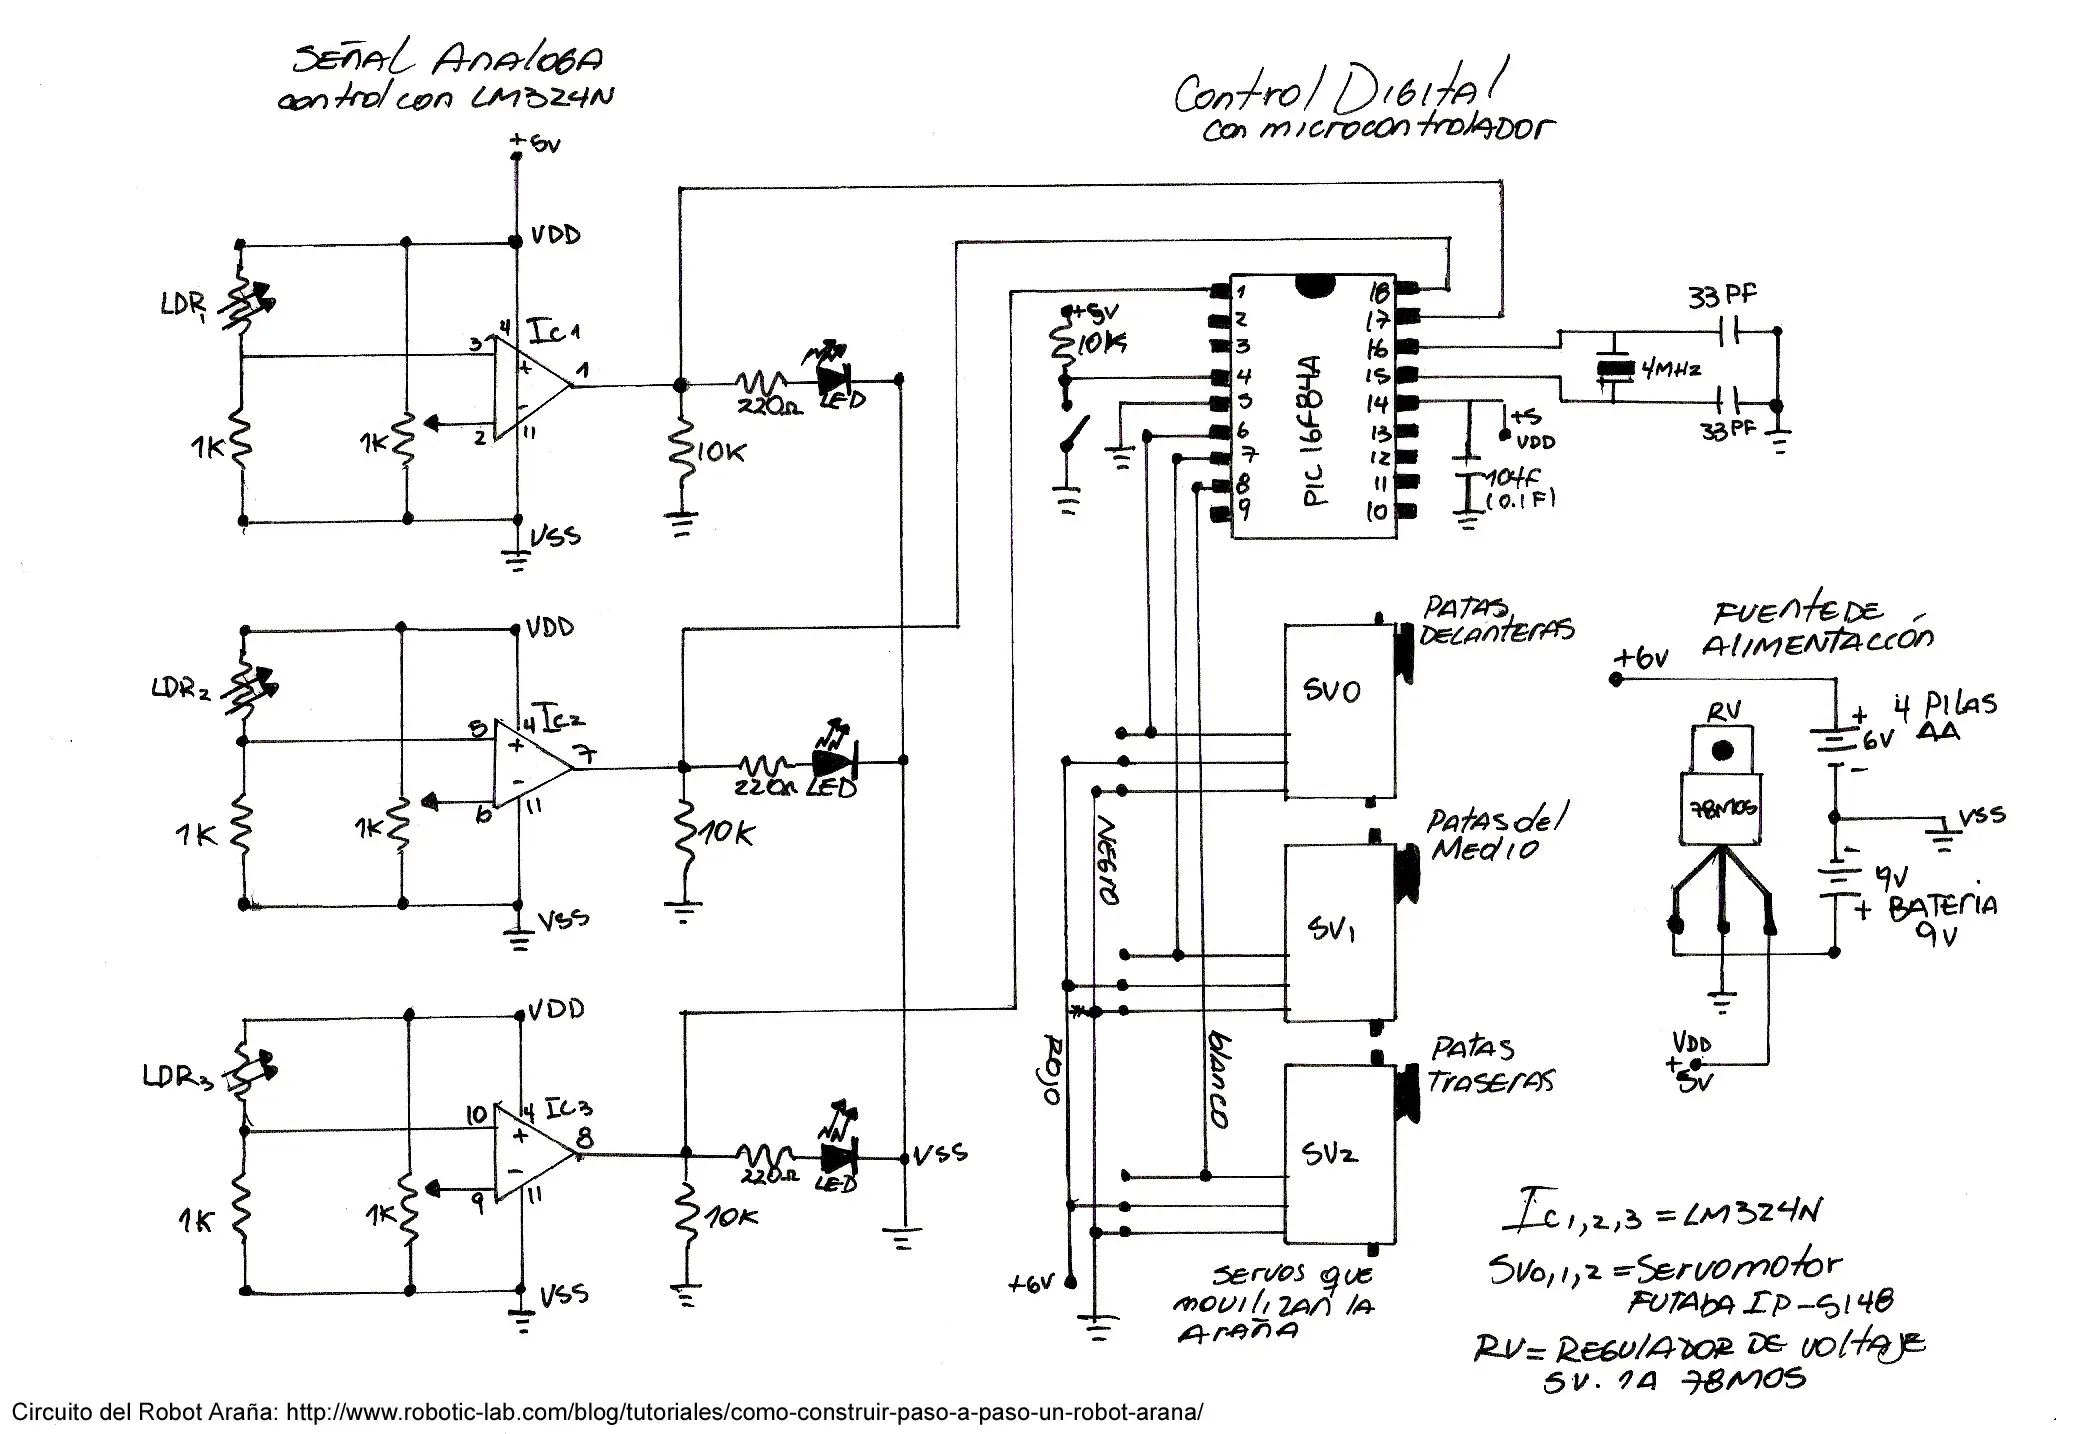 SEÑAL ANALOGA
control con LM324N
+5V
VDD
LDR1
Ic1
4
3
+
1
-
2
11
1K
1K
220Ω
LED
10K
VSS
VDD
LDR2
Ic2
4
5
+
7
-
6
11
1K
1K
220Ω
LED
10K
VSS
VDD
LDR3
Ic3
4
10
+
8
-
9
11
1K
1K
220Ω
LED
10K
VSS
VSS
Control DIGITAL
con microcontrolADOR
+5V
10K
PIC 16F84A
1
2
3
4
5
6
7
8
9
18
17
16
15
14
13
12
11
10
33 PF
4MHz
33 PF
+5
VDD
104F
(0.1F)
SV0
PATAS
DELANTERAS
SV1
PATAS del
MEDIO
SV2
PATAS
TRASERAS
NEGRO
ROJO
blanco
+6V
SERVOS que
movilizan la
Araña
FUENTE DE
ALIMENTACCIÓN
+6V
RV
78M05
+
6V
-
4 PILAS
AA
VSS
-
9V
+
BATERIA
9V
VDD
+
5V
Ic1,2,3 = LM324N
SV0,1,2 = Servomotor
FUTABA IP-S148
RV = REGULADOR DE VOLTAJE
5V. 1A 78M05
Circuito del Robot Araña: http://www.robotic-lab.com/blog/tutoriales/como-construir-paso-a-paso-un-robot-arana/